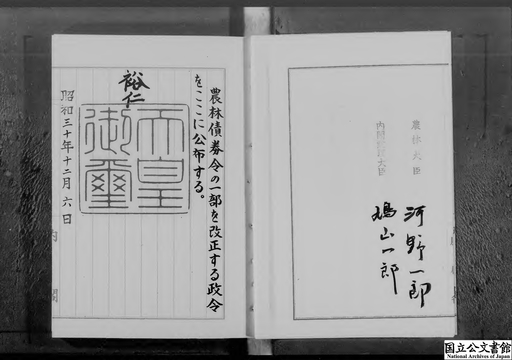 農林大臣
河野一郎
内閣総理大臣
鳩山一郎
農林債券令の一部を改正する政令
をここに公布する。
裕仁
天皇
御璽
昭和三十年十二月六日
内閣
国立公文書館
National Archives of Japan